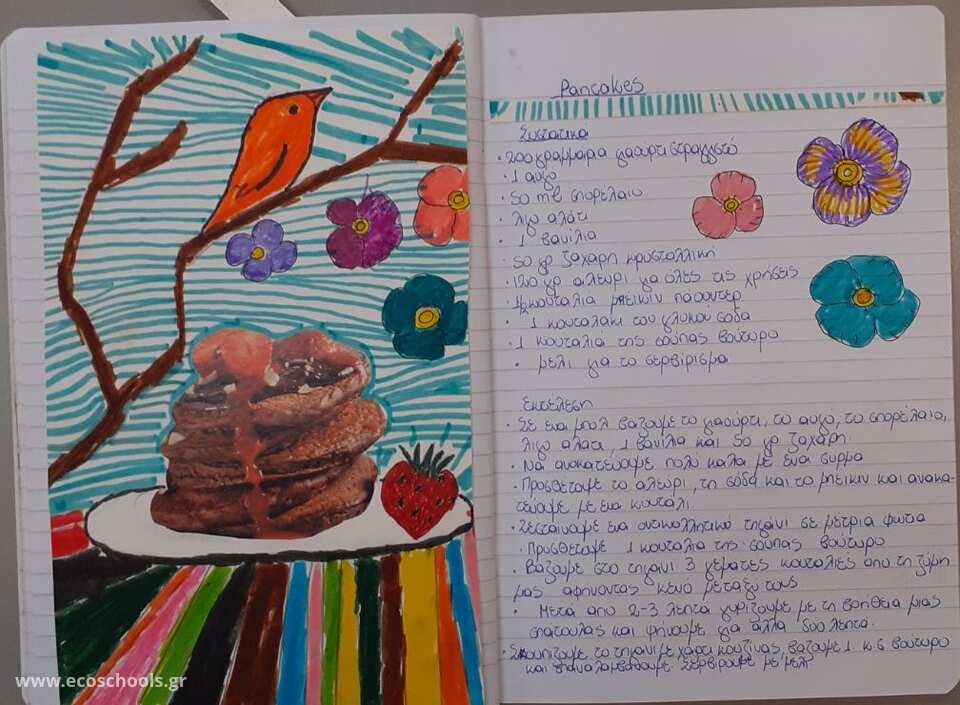 Pancakes
Συστατικα
· 200 γραμμαρια γιαουρτι στραγγιστό
· 1 αυγο
· 50 ml σπορελαιο
· λιγο αλάτι
· 1 βανιλια
· 50 γρ ζαχαρη κρυσταλλικη
· 120 γρ αλευρι για όλες τις χρήσεις
κουταλια μπεικιν παουντερ
· 1 κουταλακι του γλυκου σόδα
· 1 κουταλια της σουπας βούτυρο
· μελι για το σερβιρισμα
Εκτέλεση
· Σε ενα μπολ βαζουμε το γιαούρτι, το αυγό, το σπορέλαιο,
λιγο αλατι, 1 βανιλια και 50 γρ ζαχαρη.
· Να ανακατευουμε πολυ καλα με ένα συρμα
· Προσθετουμε το αλευρι, τη σόδα και το μπεικιν και ανακα-
τευουμε με ενα κουταλι
· Ζεσταινουμε ενα αντικολλητικό τηγανι σε μέτρια φωτια
· Προσθετουμε 1 κουταλια της σουπας βουτυρο
· Βάζουμε στο τηγανι 3 γεματες κουταλιες απο τη ζύμη
μας αφηνοντας κενό μεταξυ τους
· Μετά απο 2-3 λεπτα γυρίζουμε με τη βοήθεια μιας
σπατουλας και ψήνουμε για άλλα δυο λεπτά.
· Σκουπιζουμε το τηγανι με χαρτι κουζινας, βαζουμε 1 κ.σ βουτυρο
και επαναλαμβανουμε. Σερβιρουμε με μελι
www.ecoschools.gr